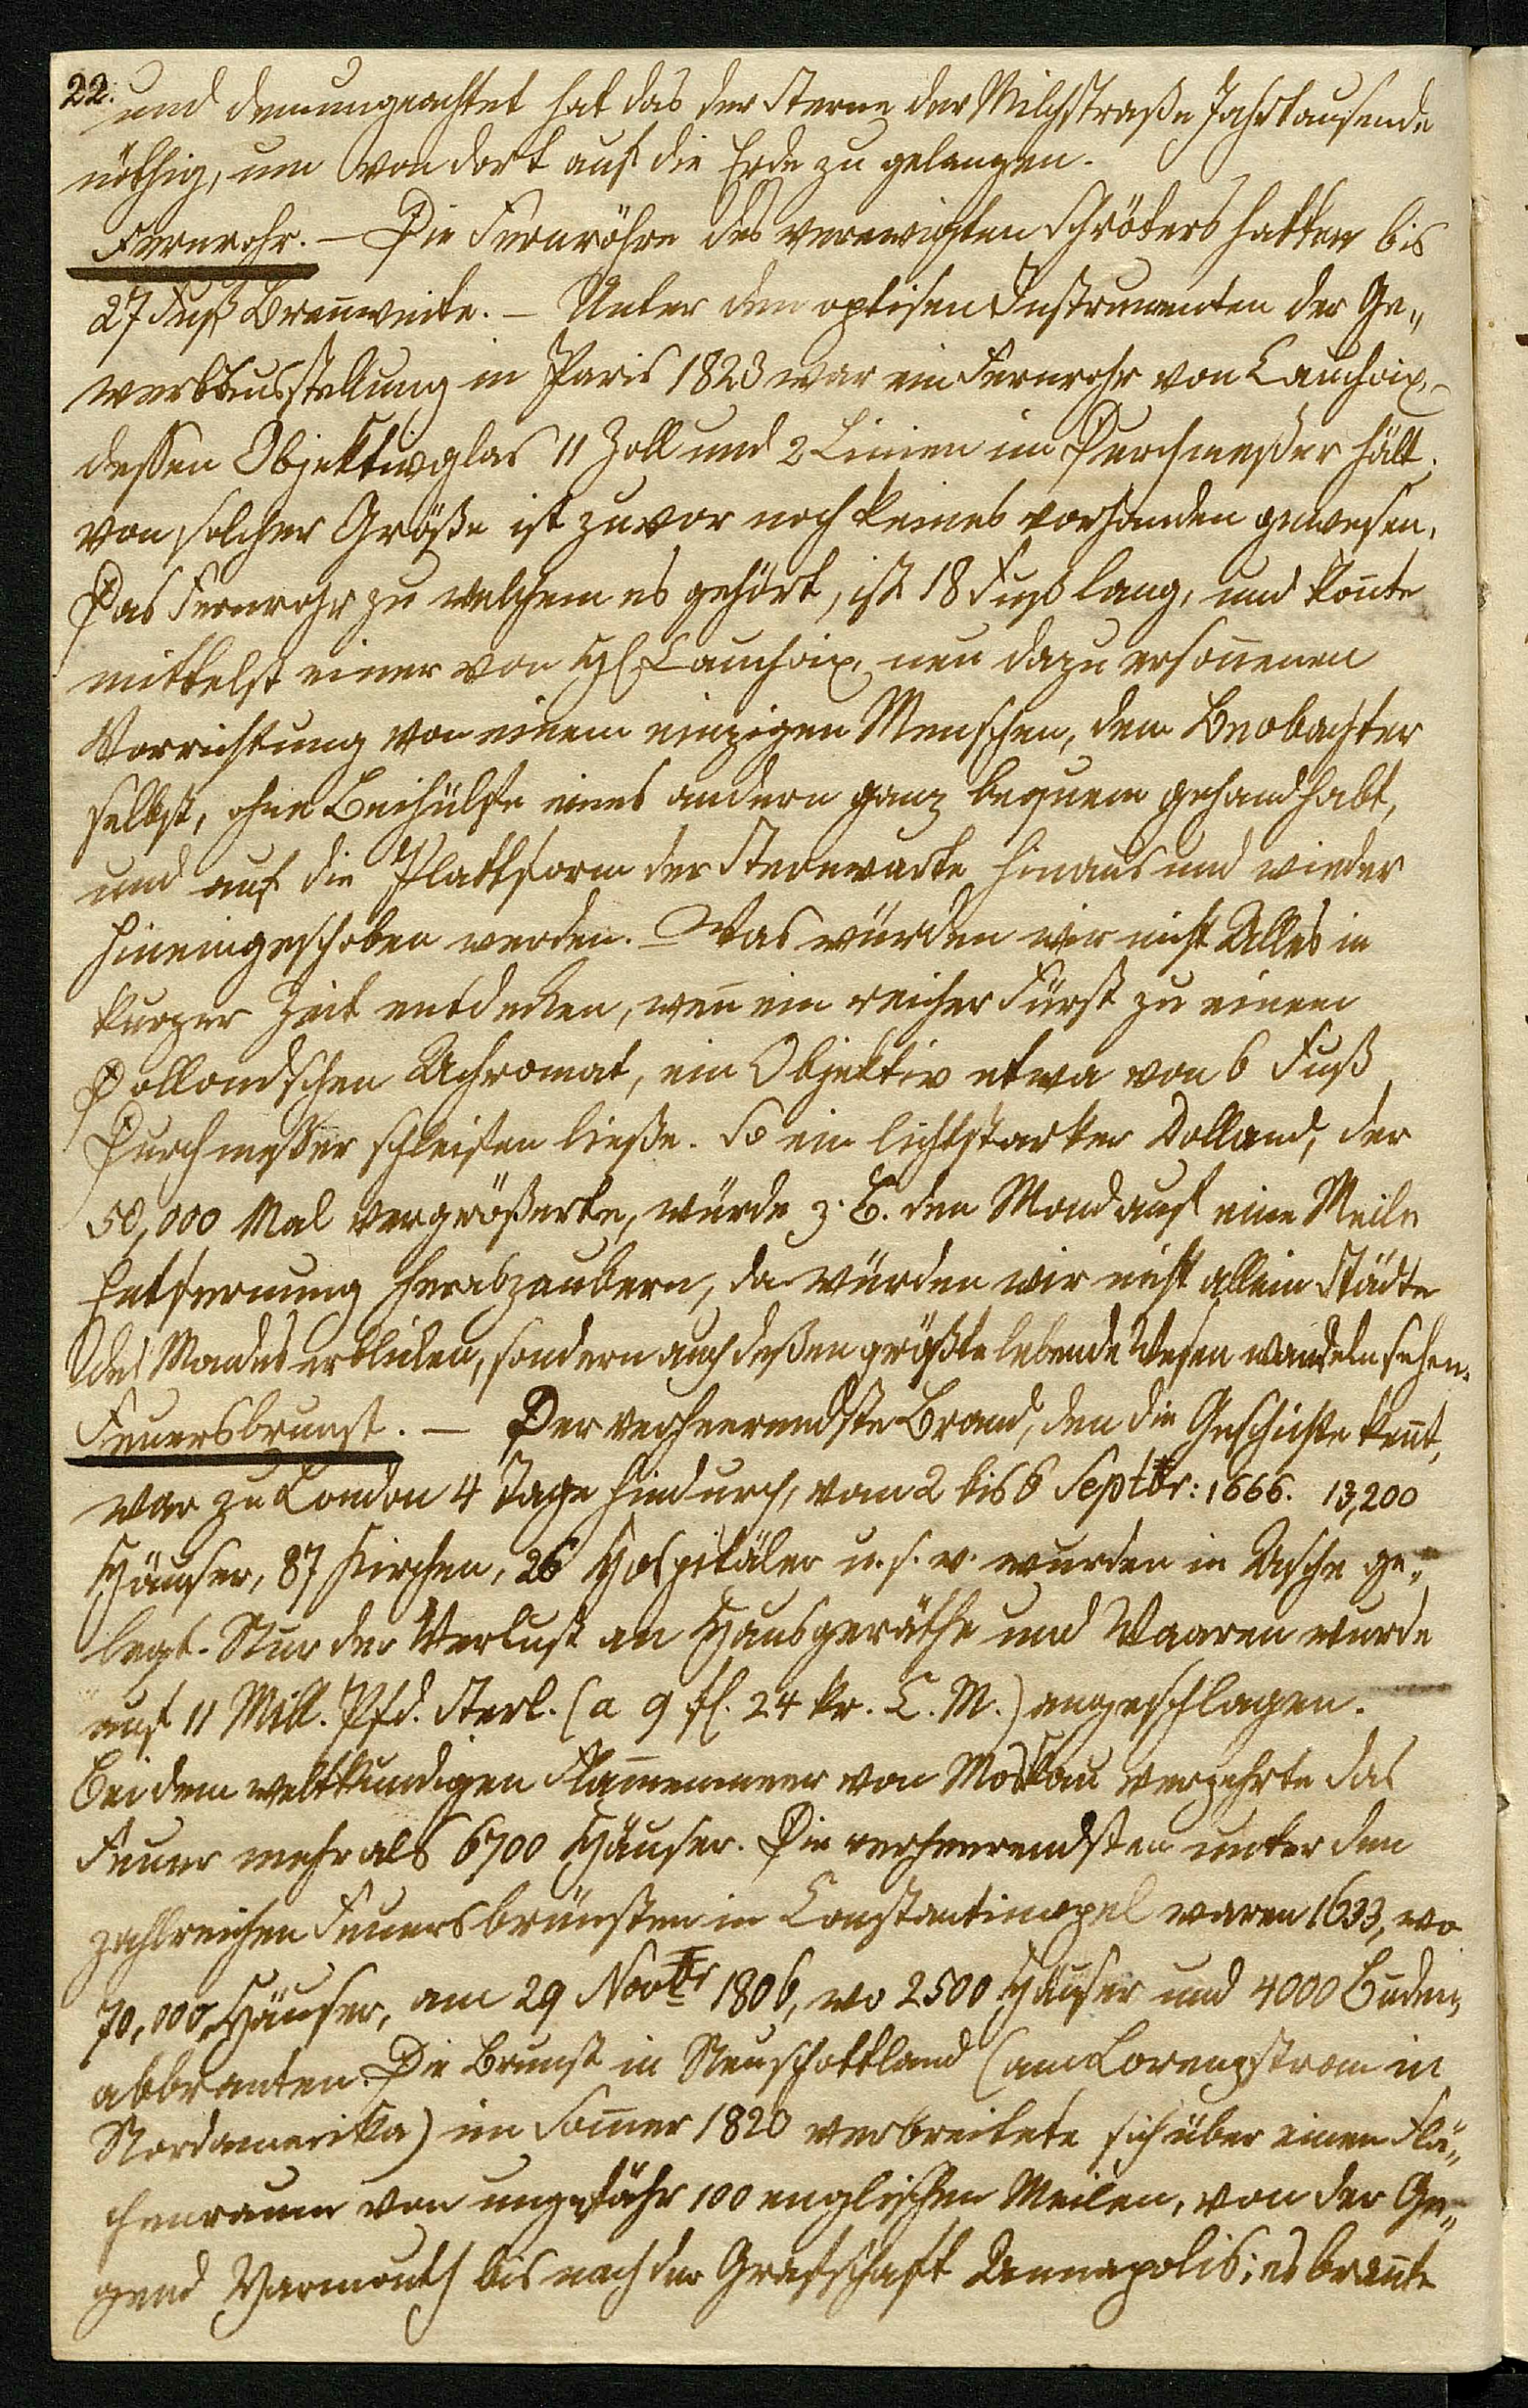 22.
und demungeachtet hat das der Sterne der Milchstraße Jahrtausende
nöthig, um von dort auf die Erde zu gelangen.
Fernrohr. — Die Fernröhre des verewigten Schröters hatten bis
27 Fuß Breñweite. — Unter den optisen Instrumenten der Ge„
werbausstellung in Paris 1823 war ein Fernrohr von Cauchoix,
dessen Objektivglas 11 Zoll und 2 Linien im Durchmeßer hält.
von solcher Größe ist zuvor noch keines vorhanden gewesen.
Das Fernrohr zu welchem es gehört, ist 18 Fuß lang, und koñte
mittelst einer von H. Cauchoix, neu dazu ersoñenen
Vorrichtung von einem einzigen Menschen, dem Beobachter
selbst, ohne Beihülfe eines andern ganz bequem gehandhabt,
und auf die Plattform der Sternwarte hinaus und wieder
hineingeschoben werden. — Was würden wir nicht Alles in
kurzer Zeit entdecken, weñ ein reicher Fürst zu einem
Dollondschen Achromat, ein Objektiv etwa von 6 Fuß
Durchmesser schleifen ließe. So ein lichtstarker Dolland, der
50,000 Mal vergrößerte, würde z. B. den Mond auf eine Meile
Entfernung herabzaubern, da würden wir nicht allein Städte
des Mondes erblicken, sondern auch deßen größte lebende Wesen wandeln sehen.
Feuersbrunst. — Der verheerendste Brand, den die Geschichte keñt,
war zu London 4 Tage hindurch, vom 2 bis 6 Septbr: 1666. 13,200
Häuser, 87 Kirchen, 26 Hospitäler u. s. w. wurden in Asche ge„
legt. Nur der Verlust an Hausgeräthe und Waaren wurde
auf 11 Mill. Pfd. Sterl. (a 9 fl. 24 kr. C. M.) angeschlagen.
Bei dem weltkundigen Flam̃enmeer von Moskau verzehrte das
Feuer mehr als 6700 Häuser. Die verheerendsten unter den
zahlreichen Feuersbrünsten in Constantinopel waren 1633, wo
70,000 Häuser, am 29 Novbr 1806, wo 2500 Häuser und 4000 Buden,
abbranten. Die Brunst in Neuschottland (am Lorenzstrom in
Nordamerika) im Som̃er 1820 verbreitete sich über einen Flä„
chenraum von ungefähr 100 englischen Meilen, von der Ge„
gend Yarmouth bis nach der Grafschaft Annapolis; es brañte